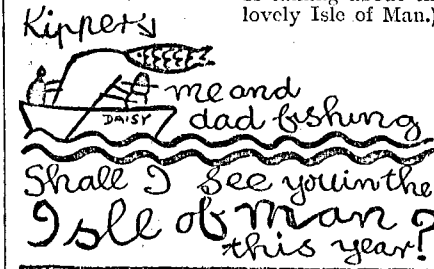 lovely Isle of Man.)
Kippers
me and
DAISY
dad fishing
Shall I see you in the
Isle of Man?
this year!